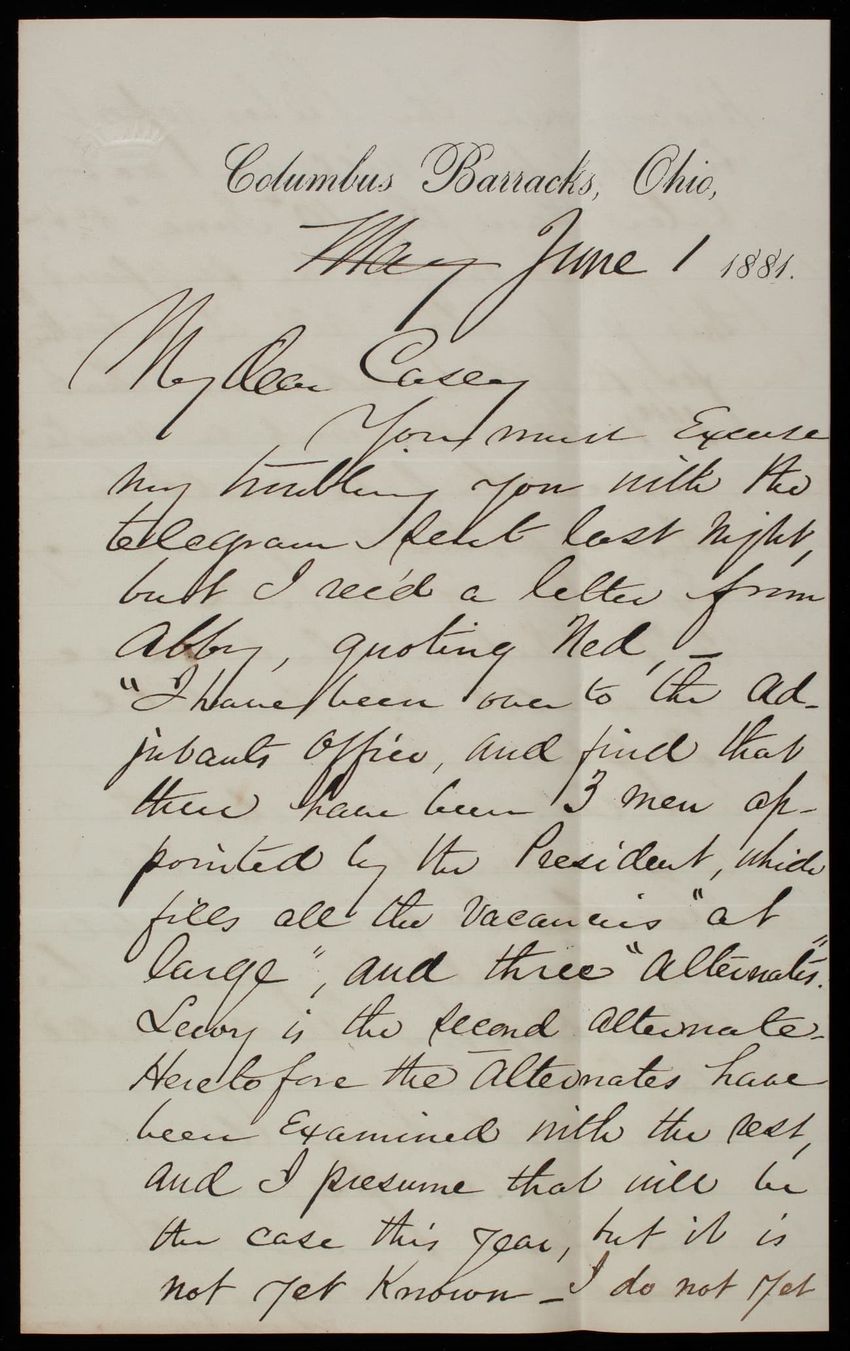 Columbus Barracks, Ohio,
May June 1 1881.
My dear Casey
You must Excuse
my troubling you with the
telegram I sent last night,
but I rec'd a letter from
Abby, quoting Ned, —
"I have been over to the Ad-
jutants Office, and find that
there have been 3 men ap-
pointed by the President, which
fills all the vacancies "at
large", and three "Alternates".
is the second alternate.
Heretofore the Alternates have
been Examined with the rest,
and I presume that will be
the case this year, but it is
not yet Known — I do not yet